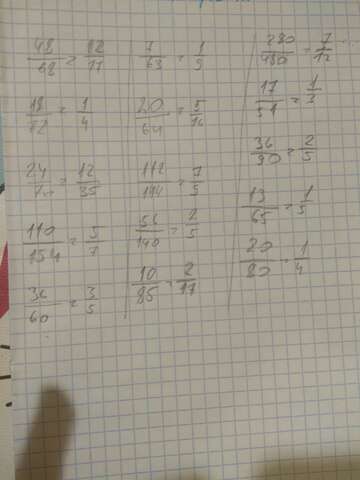 48/68 = 12/17
18/72 = 1/4
24/70 = 12/35
110/154 = 5/7
36/60 = 3/5
7/63 = 1/9
20/64 = 5/16
112/144 = 7/9
56/140 = 2/5
10/85 = 2/17
280/480 = 7/12
17/51 = 1/3
36/90 = 2/5
13/65 = 1/5
20/80 = 1/4